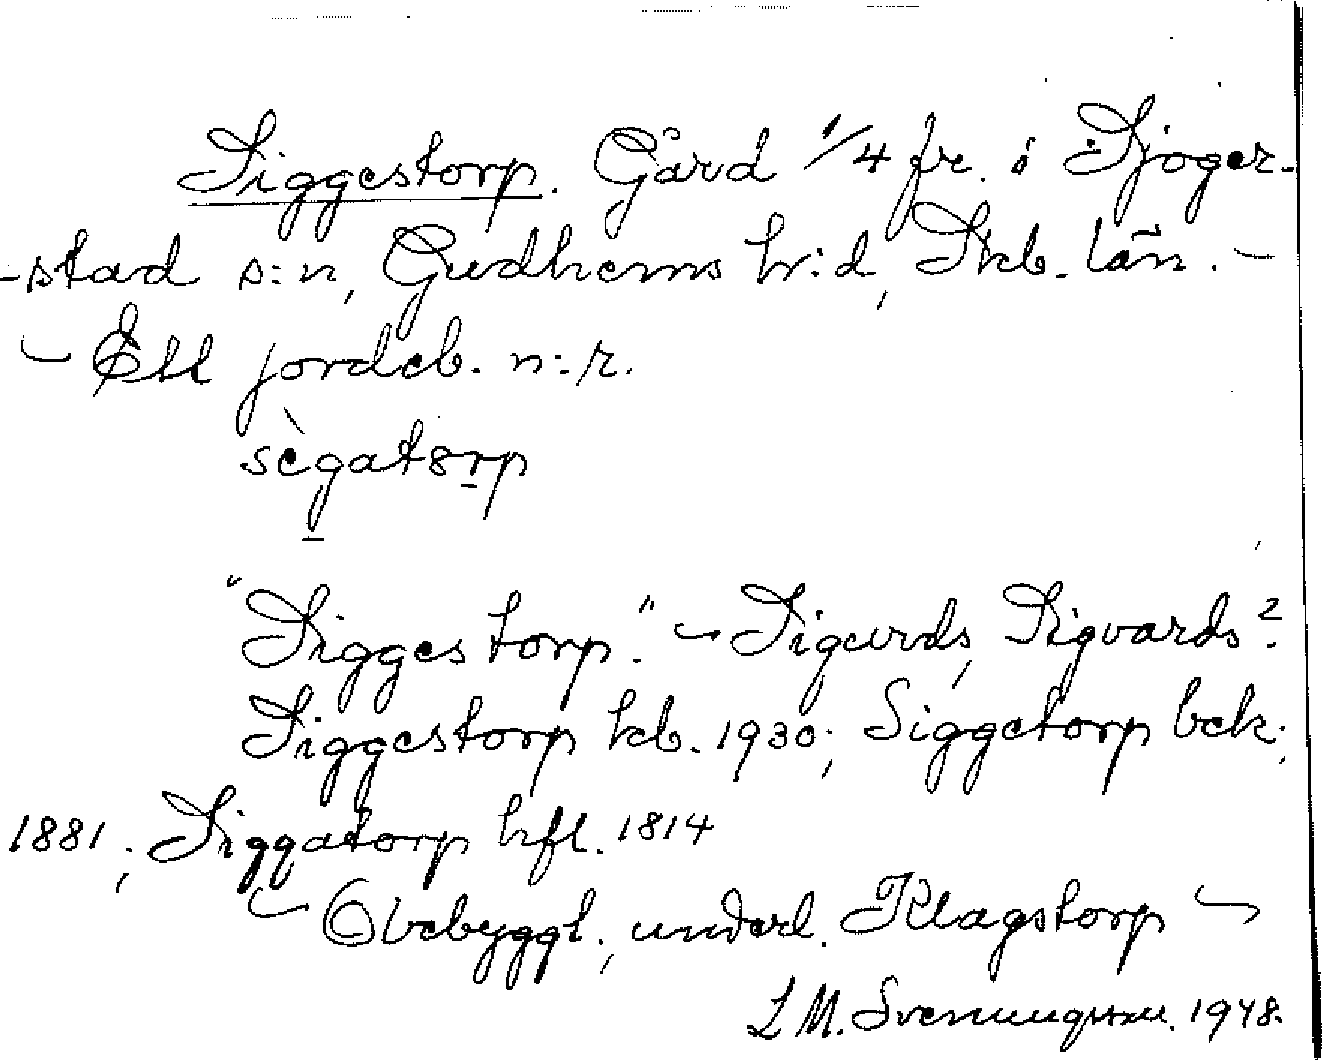 Siggestorp. Gård 1/4 fr. i Sjöger-
-stad s:n, Gudhems hr:d, Skb. län. -
- Ett jordeb. n:r.
sègatørp
"Sigges torp." - Sigurds, Sigvards?
Siggestorp kb. 1930; Siggetorp bek;
1881; Siggatorp hfl. 1814
- Obebyggt, underl. Klagstorp -
L M. Svenungsson. 1948.